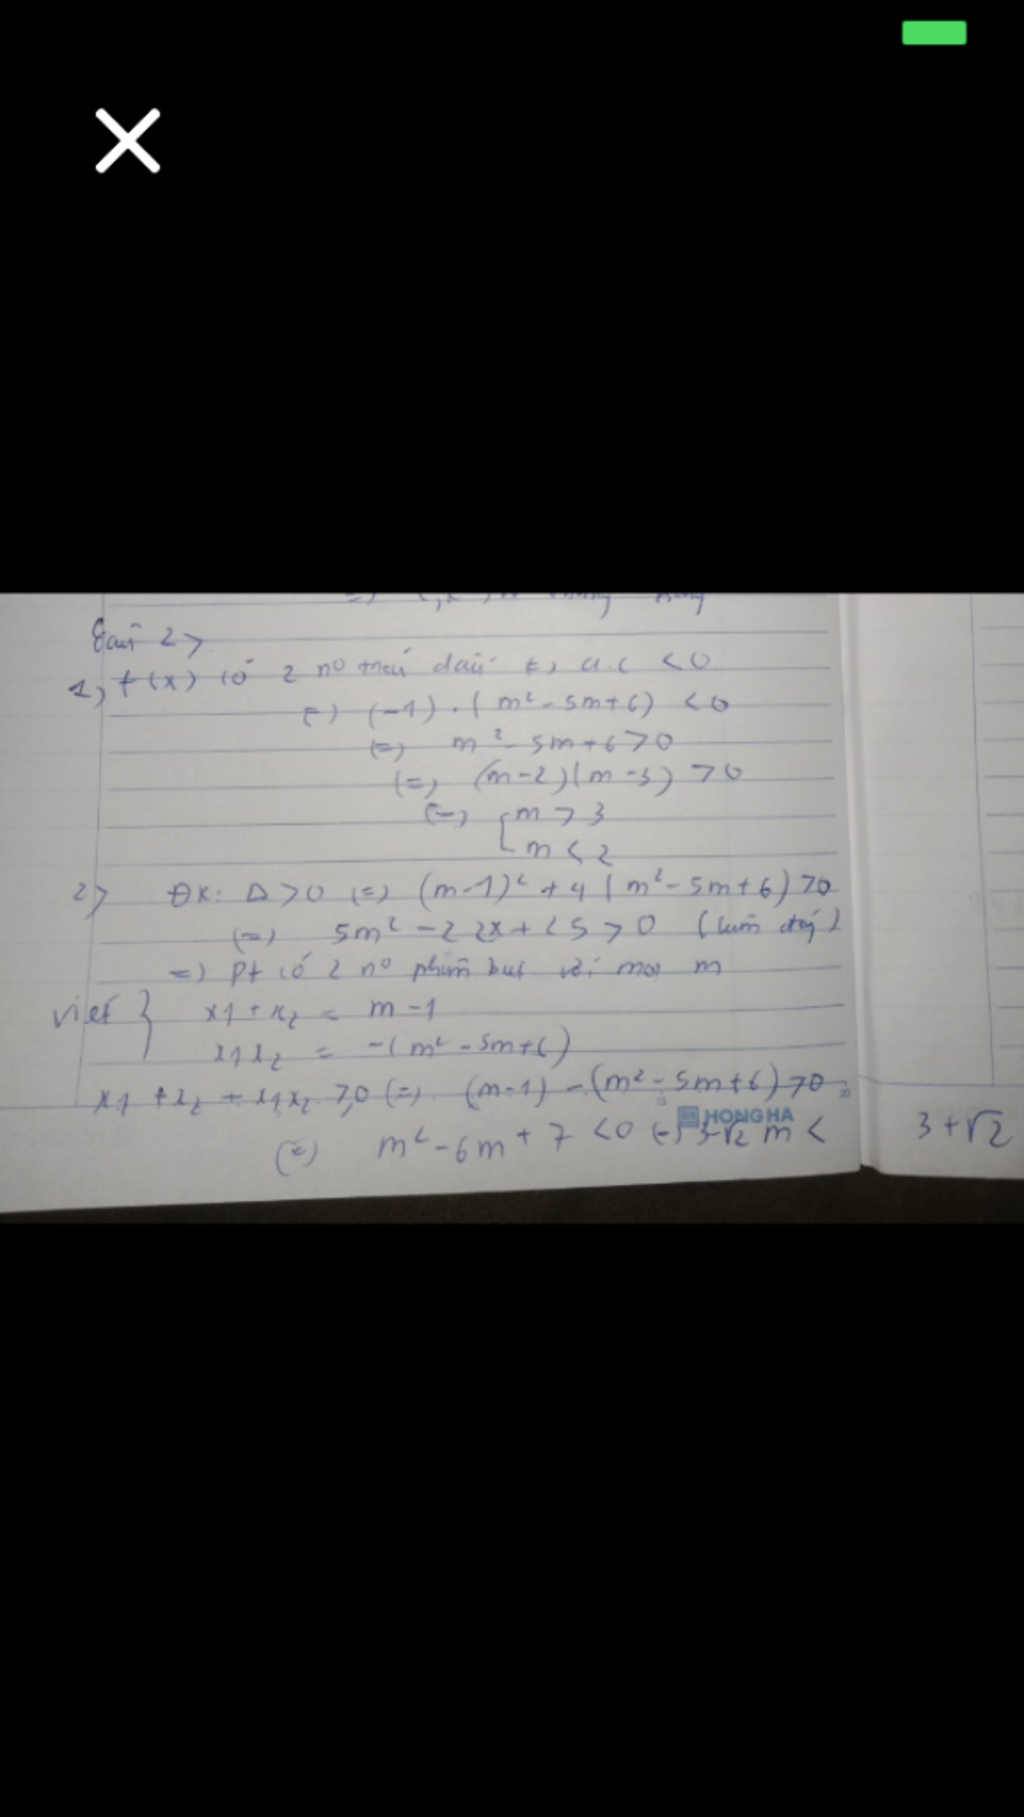 Câu 2>
1, f(x) có 2 n0 trái dấu (=) a.c < 0
(=) (-1).(m² - 5m+6) < 0
(=) m² - 5m+6 > 0
(=) (m-2)(m-3) > 0
(=) [ m > 3
m < 2
2> ĐK: Δ > 0 (=) (m-1)² + 4(m² - 5m+6) > 0
(=) 5m² - 22x + 25 > 0 (luôn đúng)
=) Pt có 2 n0 phân biệt với mọi m
Viét } x1 + x2 = m - 1
x1x2 = -(m² - 5m+6)
x1 + x2 + x1x2 ≥ 0 (=) (m-1) - (m² - 5m+6) > 0
HONG HA
(=) m² - 6m + 7 < 0 (=) 3-√2 m < 3+√2